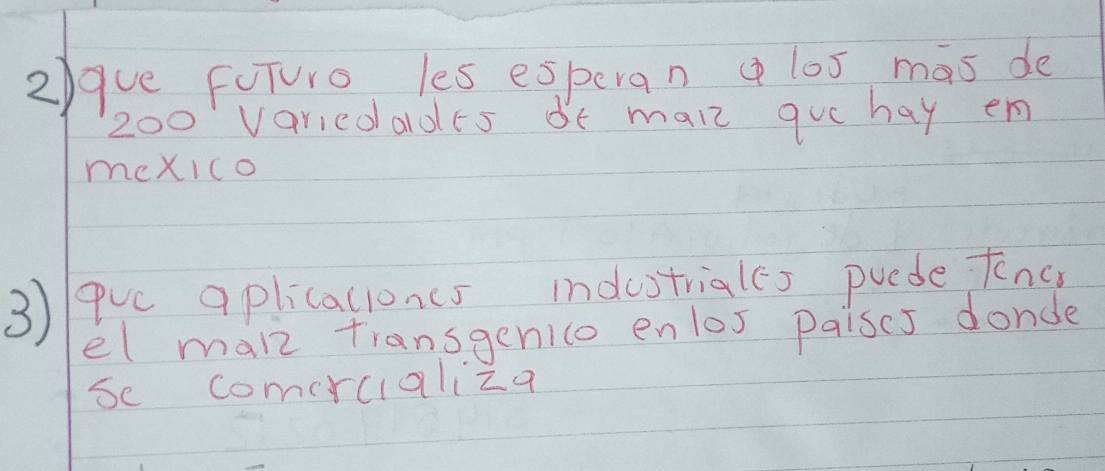 2) que FUTUro les esperan a los más de
200 variedades de maiz que hay em
mexico
3) que aplicaciones industriales puede Tener
el maiz transgenico en los paises donde
se comercializa